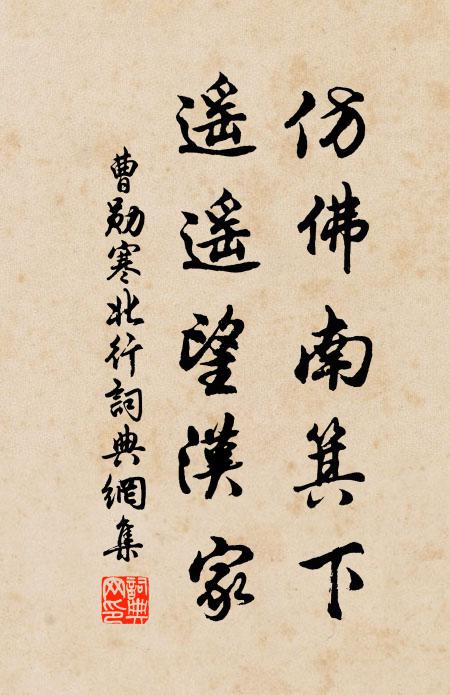 仿佛南箕下
遥遥望漢家
曹勛寒北行詞典網集
詞典網印